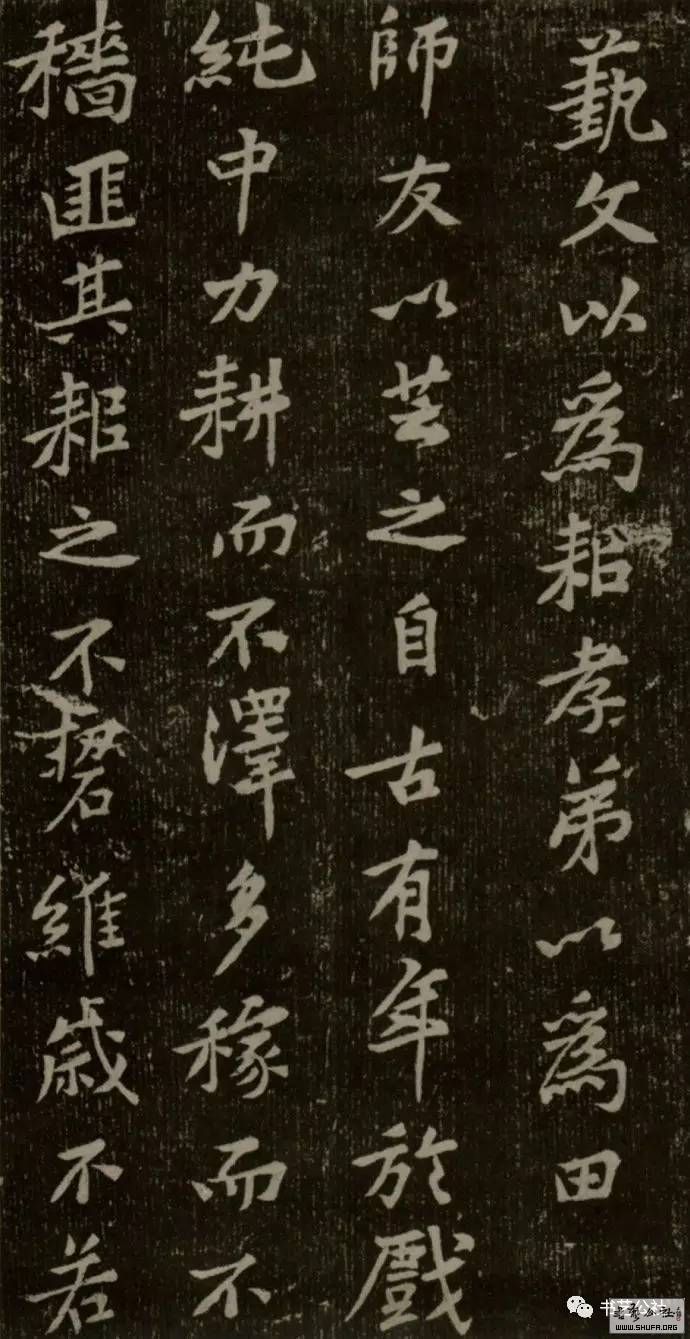 藝文以為耜孝弟以為田
師友以芸之自古有年於戲
純中力耕而不澤多稼而不
穡匪其耜之不硻維歲不若
书艺公社
WWW.SHUFA.ORG